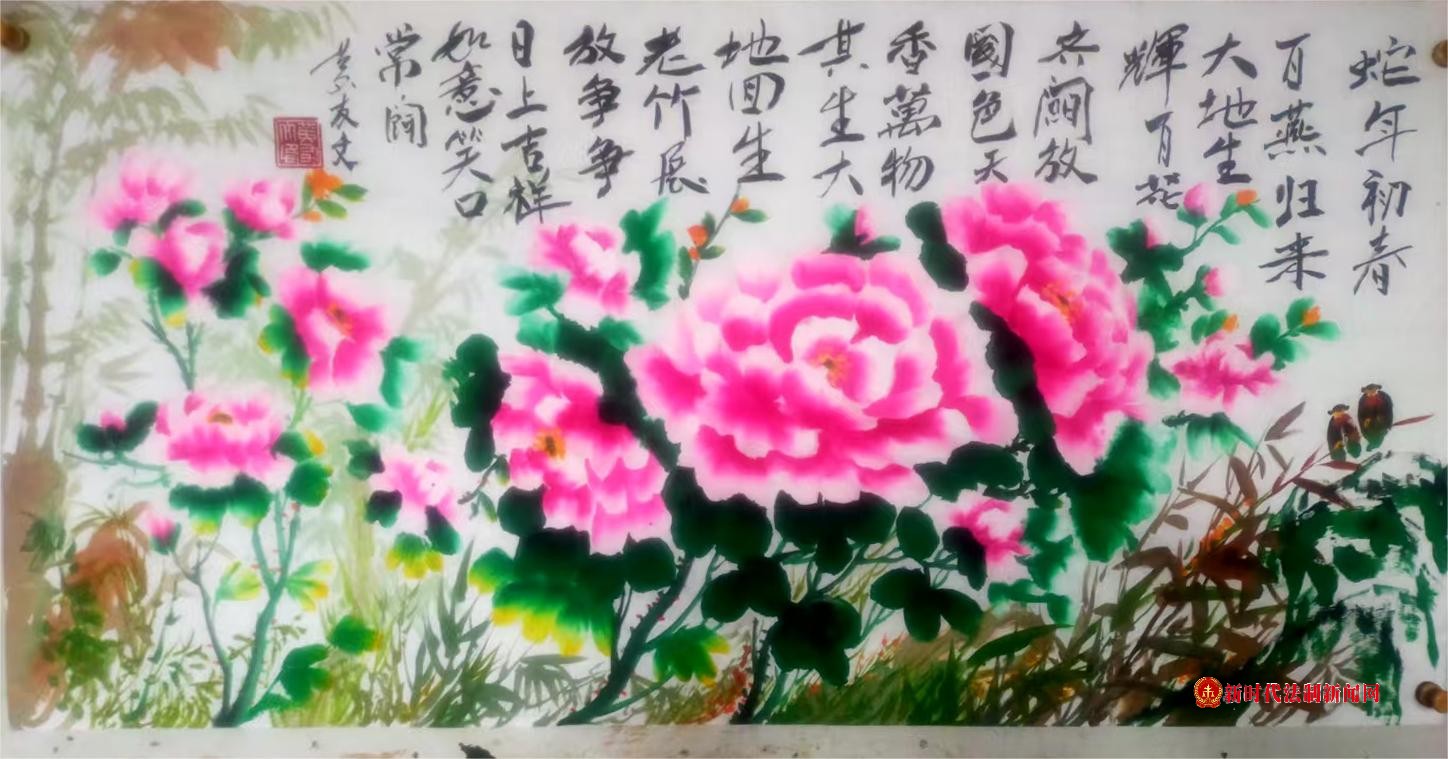 蛇年初春
百燕归来
大地生
輝百花
齐開放
國色天
香萬物
其生大
地回生
老竹展
放争争
日上吉祥
如意笑口
常開
友文
新时代法制新闻网